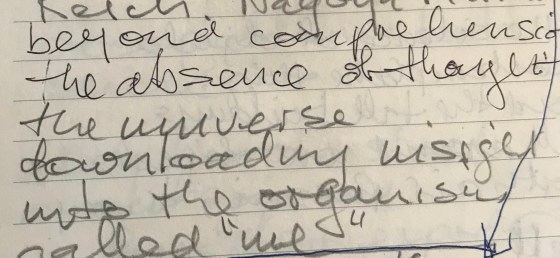 beyond comprehensio
the absence of thought
the universe
downloading insight
into the organism
called "me"